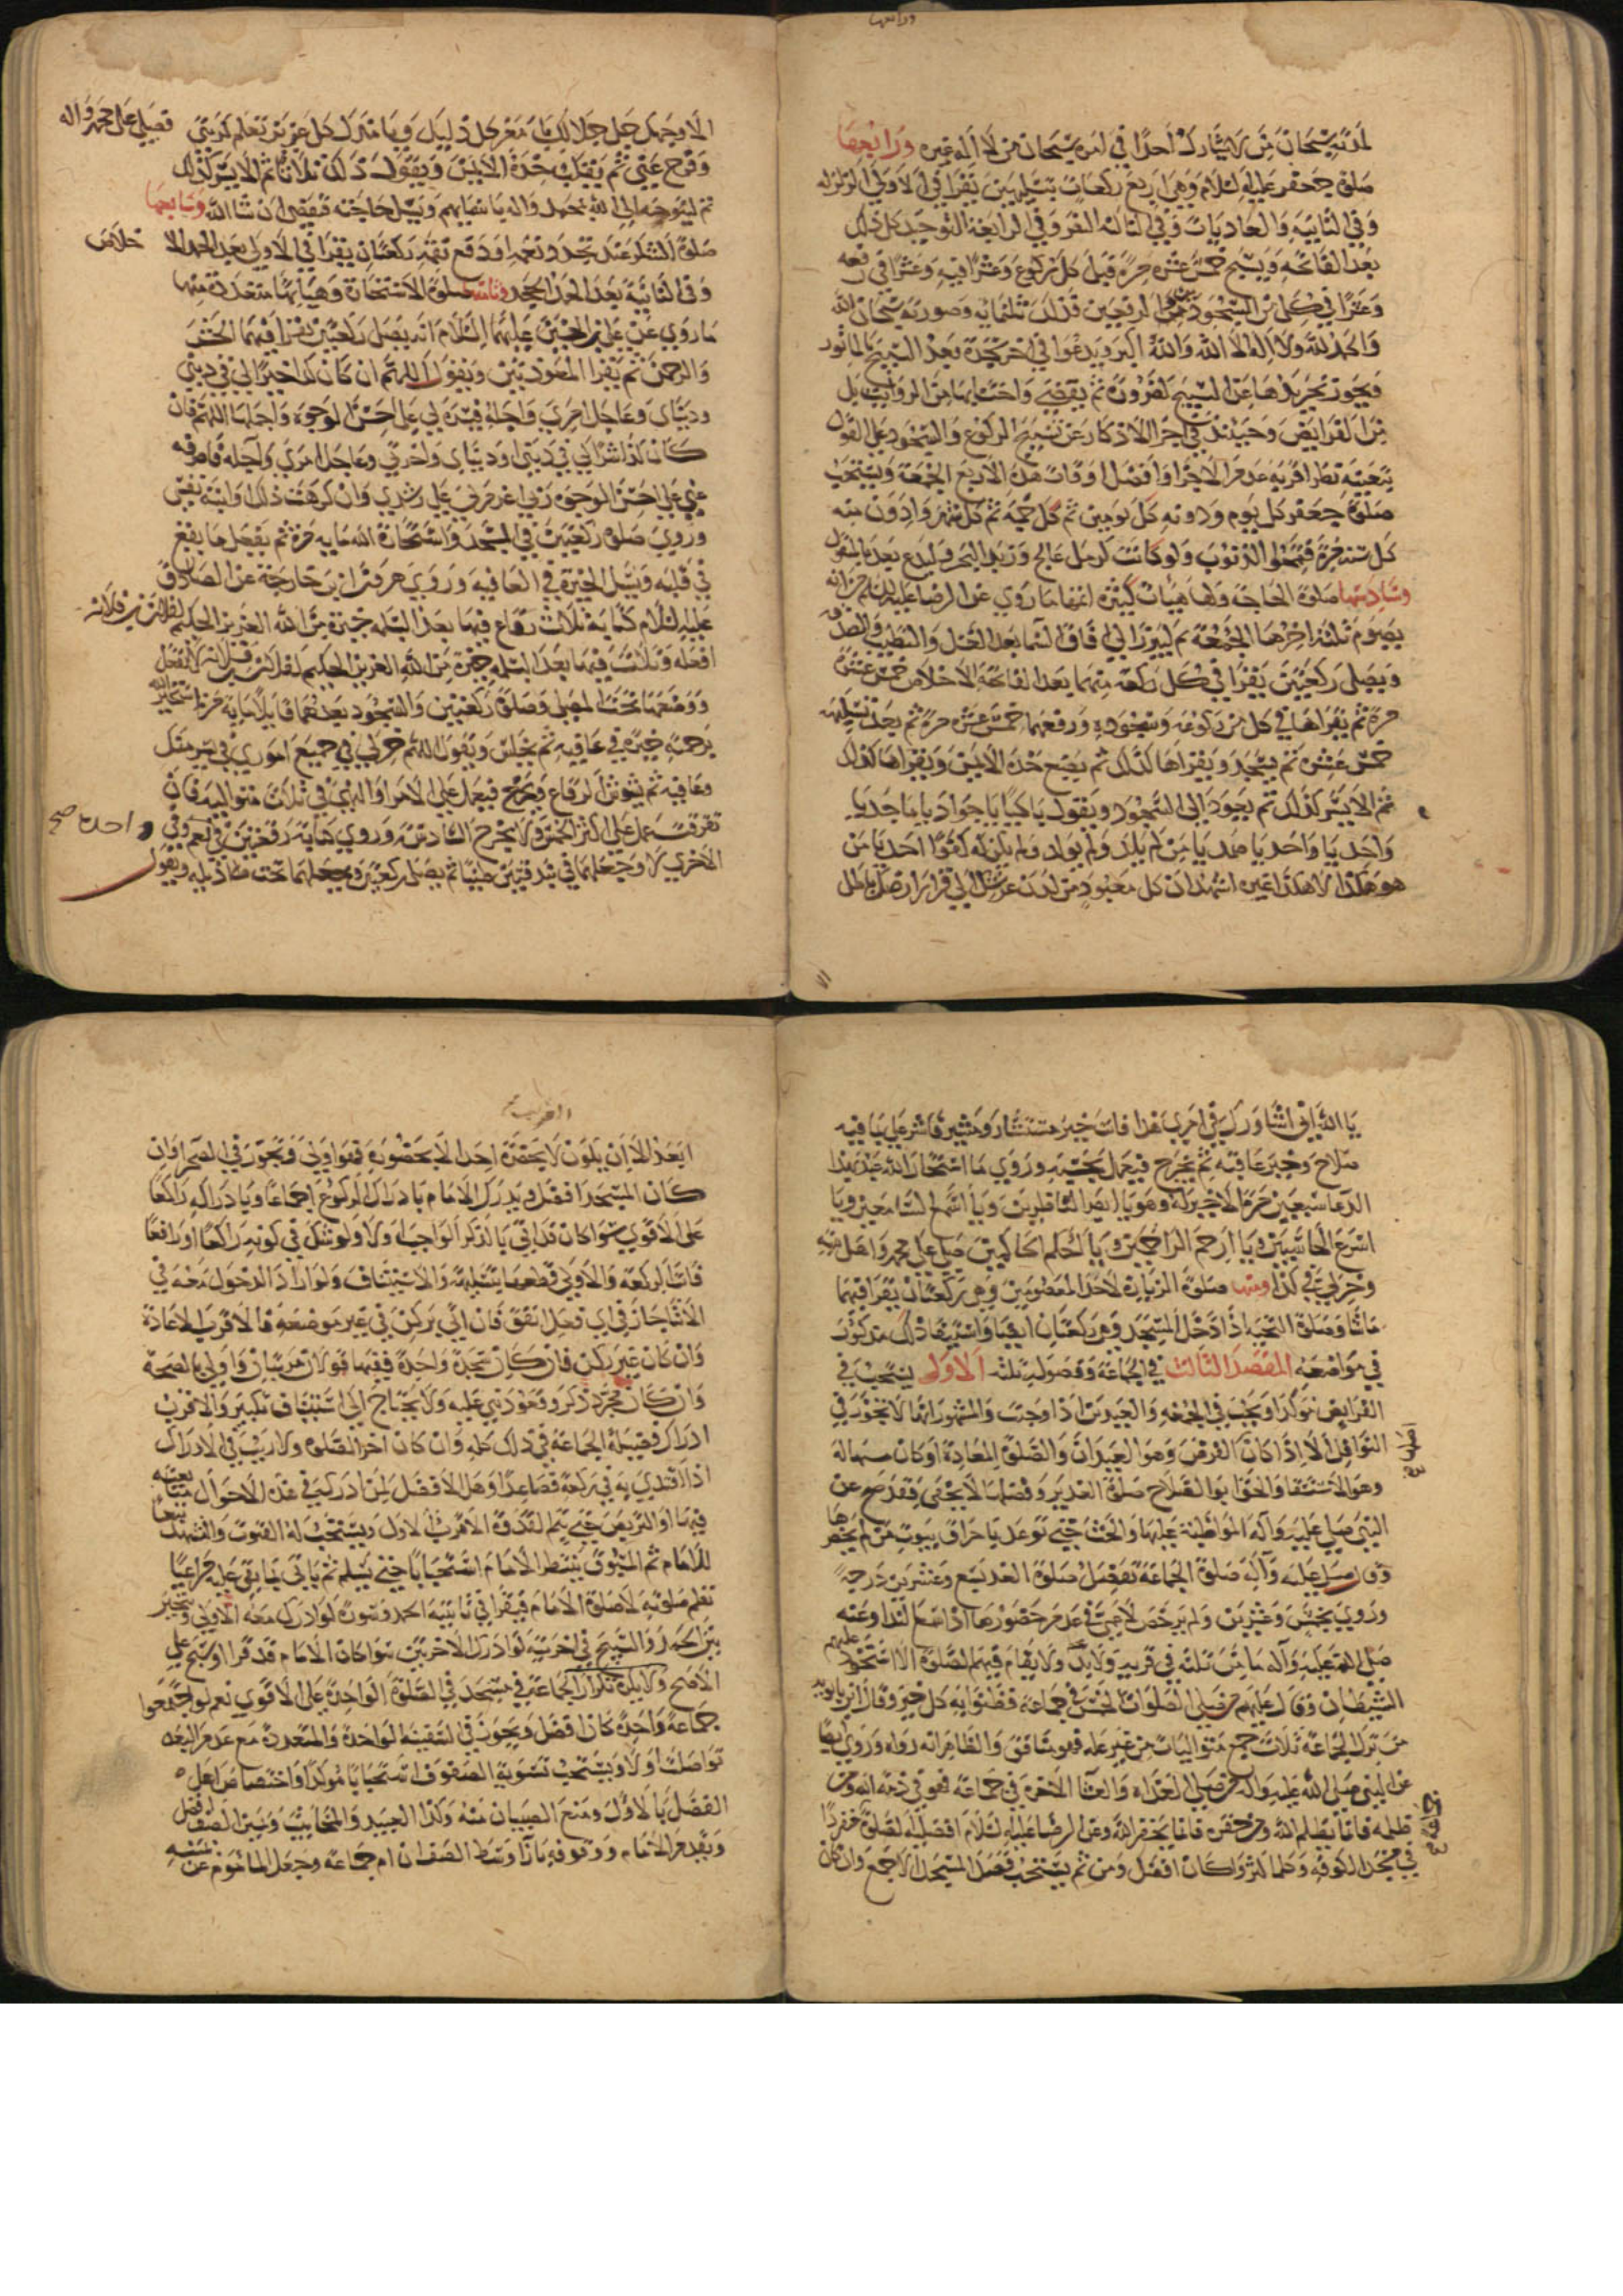 لديه سبحان من لا يشارك أحدا في امره سبحان من لا اله غيره ورابعها
صلوة جعفر عليه السلام وهي اربع ركعات بتسليمتين يقرا في الاولى الزلزله
وفي الثانية والعاديات وفي الثالثة النصر وفي الرابعة التوحيد كل ذلك
بعد الفاتحه ويسبح خمس عشرة مرة قبل كل ركوع وعشرا فيه وعشرا في رفعه
وعشرا في كل من السجود من الرفعين فذلك ثلثمائه وصورته سبحان الله
والحمد لله ولا اله الا الله والله اكبر ويدعوا في اخر سجدة بعد التسبيح بالماثور
فيجوز تجريدها عن التسبيح لضرورة ثم يقضيه واحتسابها من الرواتب بل
من الفرايض وحينئذ في اجزا الاذكار عن تسبيح الركوع والسجود على القول
بتعينه نظر اقربه عدم الاجزا وافضل اوقات هذه الاربع الجمعة ويستحب
صلوة جعفر كل يوم ودونه كل يومين ثم كل جمعة ثم كل شهر وادون منه
كل سنة مرة فتمحوا الذنوب ولو كانت كرمل عالج وزبد البحر وليدع بعدها بالمنقول
وسادسها صلوة الحاجة ولها هيئات كثيره منها ما روي عن الرضا عليه السلام من انه
يصوم ثلثة اخرها الجمعة ثم ليبرز الى
ويصلى ركعتين يقرا في كل ركعة منهما بعد الفاتحة الاخلاص خمس عشرة
مرة ثم يقراها في كل من ركوعه وسجوده ورفعهما خمس عشرة مرة ثم بعد تسليمه
خمس عشرة ثم يسجد ويقراها كذلك ثم يضع خده الايمن ويقراها كذلك
ثم الايسر كذلك ثم يعود الى السجود ويقول باكيا يا جواد يا ماجد يا
واحد يا احد يا صمد يا من لم يلد ولم يولد ولم يكن له كفوا احد يا من
هو هكذا لا هكذا غيره اشهد ان كل معبود من لدن عرشك الى قرار ارضك باطل
الا وجهك جل جلالك يا معز كل ذليل ويا مذل كل عزيز تعلم كربتي فصل على محمد واله
وفرج عني ثم يقلب خده الايمن ويقول ذلك ثلاثا ثم الايسر كذلك
ثم ليتوجه الى الله بمحمد واله يا سميهم ويسل حاجته فيقضى ان شاء الله وسابعها
صلوة الشكر عند تجدد نعمه او دفع نقمه ركعتان يقرا في الاولى بعد الحمد الاخلاص
وفي الثانية بعد الحمد الجحد وثامنها صلوة الاستخارة وهيئاتها متعددة منها
ما روي عن علي بن الحسين عليهما السلام انه يصلى ركعتين يقرا فيهما الحشر
والرحمن ثم يقرا المعوذتين ويقول اللهم ان كان كذا خيرا لي في ديني
ودنياى وعاجل امري واجله فيسره لي على احسن الوجوه واجملها اللهم فان
كان كذا شرا لي في ديني او دنياى واخرتي وعاجل امري وآجله فاصرفه
عني على احسن الوجوه ربي اعزم لي على رشدي وان كرهت ذلك وابته نفسي
وروي صلوة ركعتين في المسجد واستخارة الله مايه مرة ثم يفعل ما يقع
في قلبه ويسل الخيرة في العافية وروي هرون بن خارجة عن الصادق
عليه السلام كتابة ثلاث رقاع فيها بعد البسملة خيرة من الله العزيز الحكيم لفلان بن فلانه
افعله وثلاث فيها بعد البسمله خيرة من الله العزيز الحكيم لفلان بن فلانة لا تفعل
ووضعها تحت المصلى وصلوة ركعتين والسجود بعدهما قايلا ماية مرة استخير الله
برحمته خيرة في عافيه ثم يجلس ويقول اللهم خر لي في جميع اموري في يسر منك
وعافيه ثم يشوش الرقاع ويخرج فيعمل على الامر او النهي في ثلاث متواليه فان
تفرقت عمل على اكثر الخمس ولا يخرج السادسة وروي كتابة رقعتين في واحدة نعم وفي صح
الاخرى لا وجعلهما في بندقتين طينا ثم يصلى ركعتين ويجعلهما تحت ذيله ويقول
يا الله اني اشاورك في امري هذا فانت خير مستشار ومشير فاشر على بما فيه
صلاح وخير عاقبة ثم يخرج فيعمل بحسبه وروي ما استخار الله عبد بهذا
الدعا سبعين مرة الا خير له وهو يا ابصر الناظرين ويا اسمع السامعين ويا
اسرع الحاسبين ويا ارحم الراحمين ويا احكم الحاكمين صل على محمد واهل بيته
وخر لي في كذا ومنها صلوة الزيارة لاحد المعصومين وهي ركعتان يقرا فيهما
ماشا وصلوة التحية اذا دخل المسجد وهي ركعتان ايضا واستيفا ذلك مذكور
في مواضعه المقصد الثالث في الجماعة وفصوله ثلثه الاول يستحب في
الفرايض موكدا ويجب في الجمعه والعيدين اذا وجبت والمشهور انها لا تجوز في
النوافل الا اذا كان الفرض وهو العيدان والصلوة المعادة او كان مسهاله
وهو الاستسقا والحق ابو الصلاح صلوة الغدير وفضلها لا يخفى فقد صح عن
النبي صلى عليه وآله المواظبة عليها والحث حتى توعد باحراق بيوت من لم يحضرها
وق صلى عليه وآله صلوة الجماعة تفضل صلوة الفذ بسبع وعشرين درجة
وروي بخمس وعشرين ولم يرخص لاعمى في عدم حضورها اذا سمع الندا وعنه
صلى الله عليه وآله ما من ثلثه في قرية ولا بدو ولا يقام فيهم الصلوة الا استحوذ عليهم
الشيطان وقال عليهم من صلى الصلوات الخمس في جماعة فظنوا به كل خير وقال ابن بابويه
من ترك الجماعة ثلاث جمع متواليات من غير علة فهو منافق والظاهر انه رواه وروي ايضا
عن النبي صلى الله عليه واله من صلى الغداه والعشا الاخرة في جماعة فهو في ذمة الله ومن
ظلمه فانما يظلم الله ومن حقره فانما يحقر الله وعن الرضا عليه السلام افضلية الصلوة منفردا
في مسجد الكوفه وكلما كثروا كان افضل ومن ثم يستحب قصد المسجد الاجمع وان كان
ابعد الا ان يكون لا يحضره احد الا بحضوره فهو اولى وتجوز في الصحرا وان
كان المسجد افضل ويدرك الامام بادراك الركوع اجماعا وبادراكه راكعا
على الاقوى سوا كان قد اتى بالذكر الواجب او لا ولو شك في كونه راكعا او رافعا
فاتت الركعة والاولى قطعها بتسليمة والاستيناف ولو اراد الدخول معه في
الاثنا جاز في اي فعل اتفق فان اتى بركن في غير موضعه فالاقرب الاعادة
وان كان غير ركن فان كان سجدة واحدة ففيها قولان مرتبان واولى بالصحة
وان كان مجرد ذكر وقعود بني عليه ولا يحتاج الى استيناف تكبير والاقرب
ادراك فضيلة الجماعة في ذلك كله وان كان آخر الصلوة ولا ريب في الادراك
اذا اقتدي به في ركعة فصاعدا وهل الافضل لمن ادركه في هذه الاحوال متابعته
فيها او التربص حتى يتم القدوة الاقرب الاول ويستحب له القنوت والتشهد تبعا
للامام ثم المسبوق ينتظر الامام استحبابا حتى يسلم ثم ياتي بما بقي عليه مراعيا
نظم صلوته لا صلوة الامام فيقرا في ثانيته الحمد وسورة لو ادرك معه الاولى ويتخير
بين الحمد والتسبيح في اخرييه لو ادرك الاخرتين سوا كان الامام قد قرا او سبح على
الاصح ولا يكره تكرار الجماعة في مسجد في الصلوة الواحدة على الاقوى نعم لو جمعوا
جماعة واحدة كان افضل ويجوز في السفينة الواحدة والمتعددة مع عدم البعد
تواصلت او لا ويستحب تسوية الصفوف استحبابا موكدا واختصاص اهل
الفضل بالاول ومنع الصبيان منه وكذا العبيد والمخانيث ويمين الصف افضل
وبقدم الامام ووقوفه بازاء وسط الصف ان ام جماعة وجعل الماموم عن يمينه